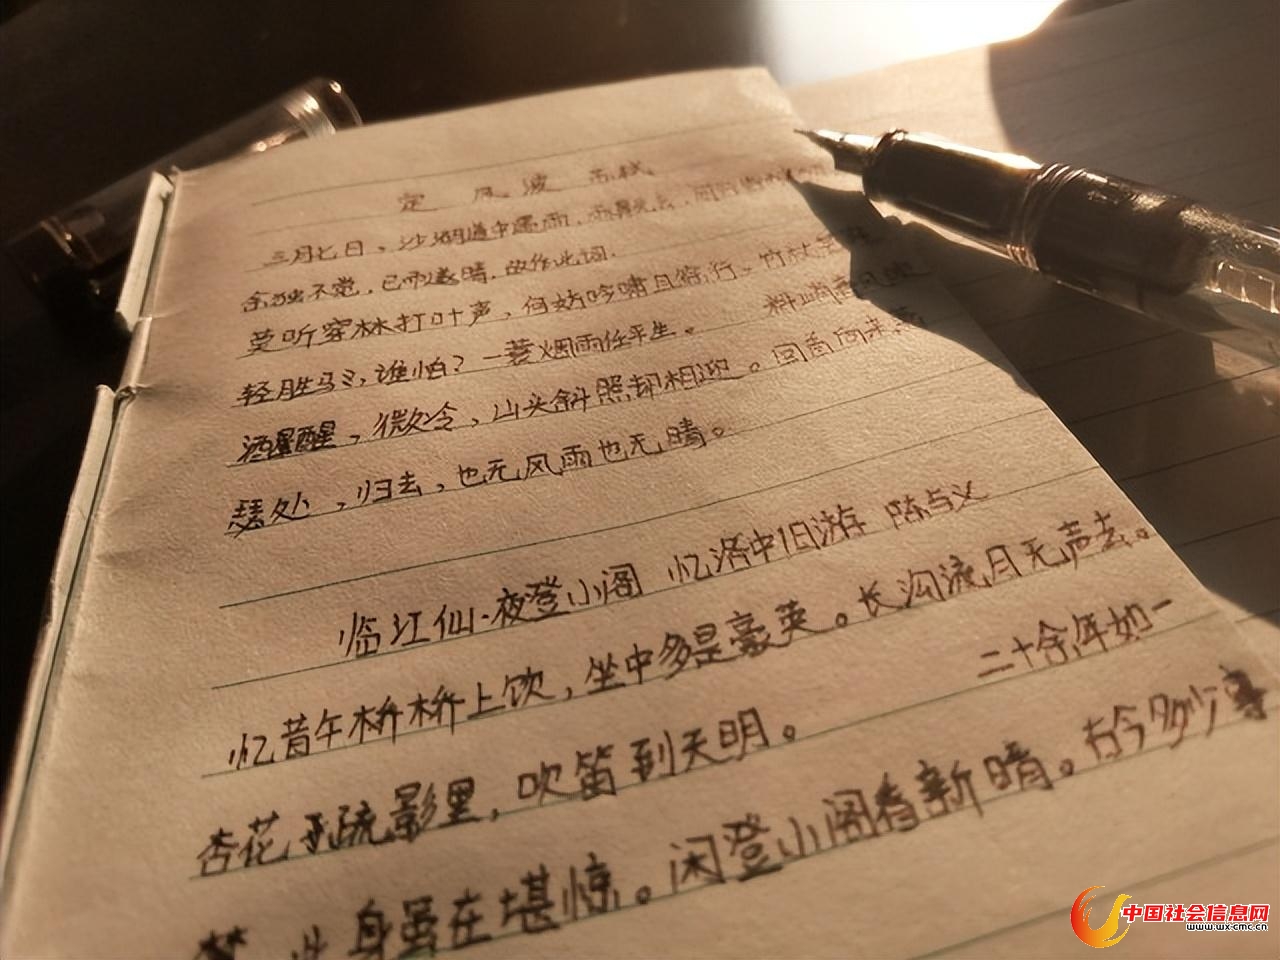 定风波 苏轼
三月七日，沙湖道中遇雨，雨具先去，同行
余独不觉，已而遂晴，故作此词。
莫听穿林打叶声，何妨吟啸且徐行。竹杖芒鞋
轻胜马，谁怕？一蓑烟雨任平生。 料峭春风吹
酒醒，微冷，山头斜照却相迎。回首向来萧
瑟处，归去，也无风雨也无晴。
临江仙·夜登小阁 忆洛中旧游 陈与义
忆昔午桥桥上饮，坐中多是豪英。长沟流月无声去。
杏花疏影里，吹笛到天明。 二十余年如一
梦，此身虽在堪惊。闲登小阁看新晴。古今多少事
中国社会信息网
www.wx-cmc.cn